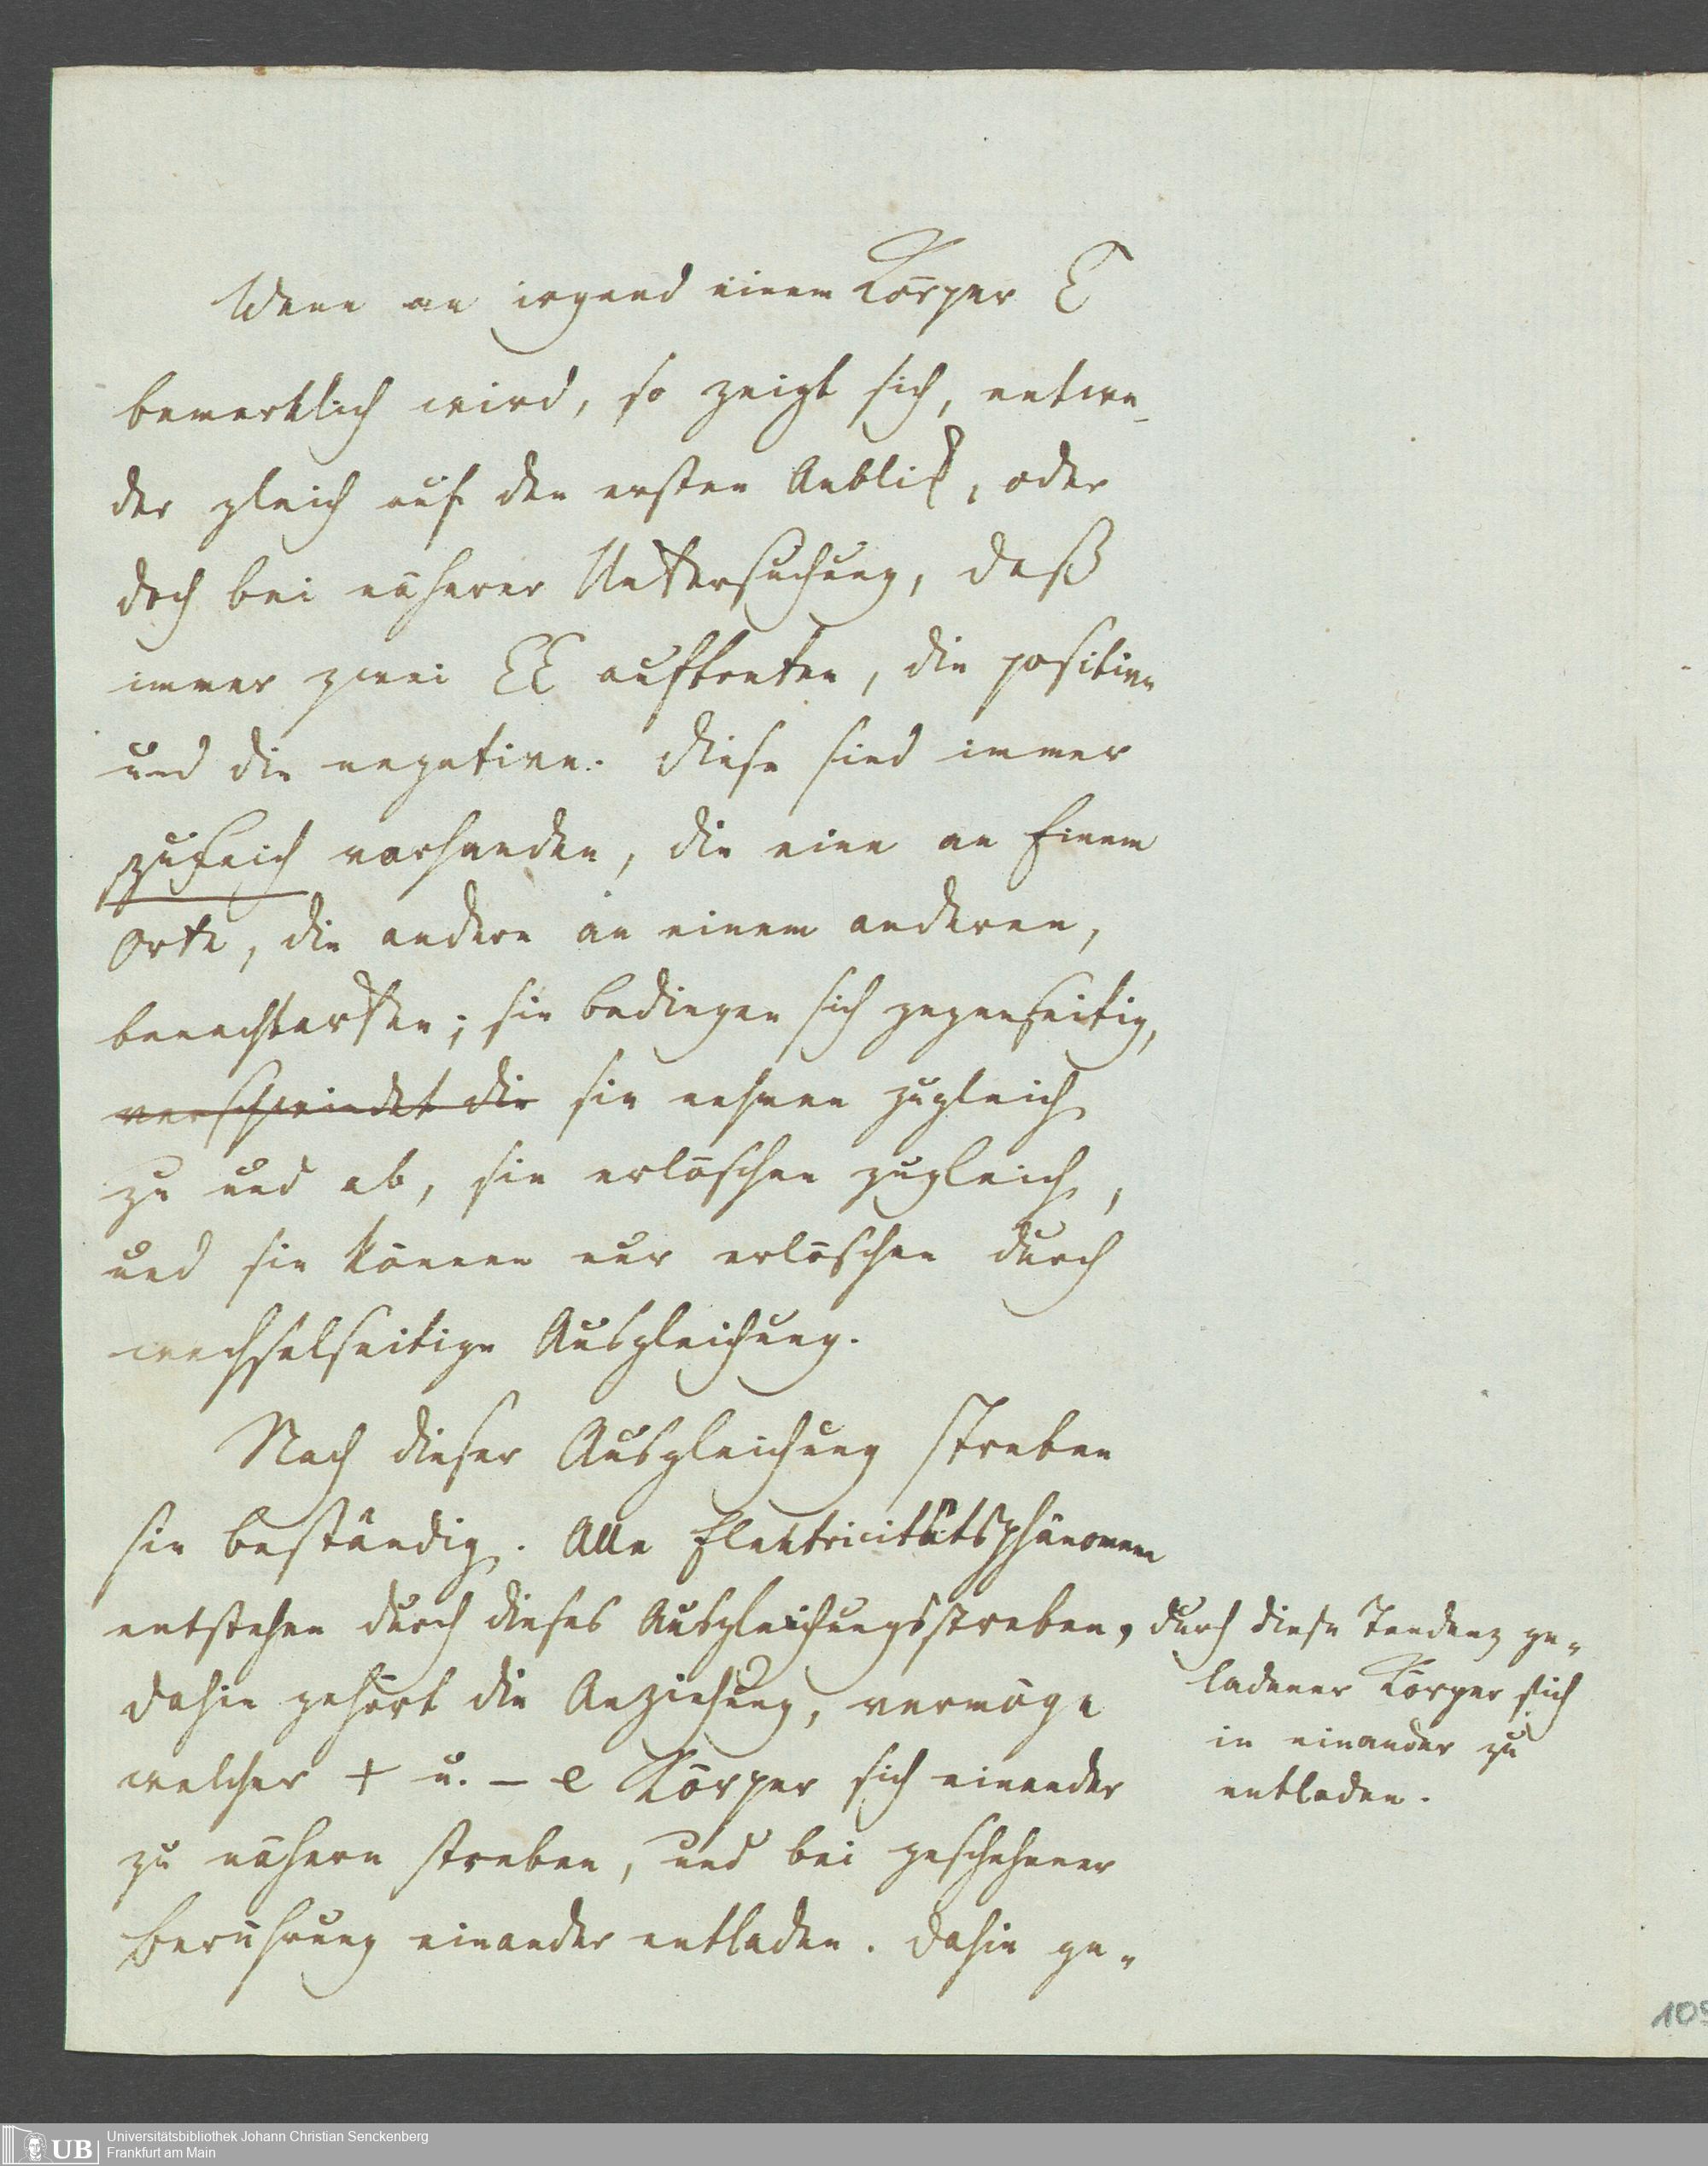 Wenn an irgend einem Körper E
bemerklich wird, so zeigt sich, entwe-
der gleich auf den ersten Anblick, oder
doch bei näherer Untersuchung, daß
immer zwei EE auftreten, die positive
und die negative. Diese sind immer
zugleich vorhanden, die eine an Einem
Orte, die andere an einem anderen,
benachbarten; sie bedingen sich gegenseitig,
verschwindet die sie nehmen zugleich
zu und ab, sie erlöschen zugleich,
und sie können nur erlöschen durch
wechselseitige Ausgleichung.
Nach dieser Ausgleichung streben
sie beständig. Alle Elektricitätsphänomene
entstehen durch dieses Ausgleichungsstreben, durch diese Tendenz ge-
ladener Körper sich
in einander zu
entladen.
dahin gehört die Anziehung, vermöge
welcher + u. - e Körper sich einander
zu nähern streben, und bei geschehener
Berührung einander entladen. Dahin ge-
109
UB
Universitätsbibliothek Johann Christian Senckenberg
Frankfurt am Main